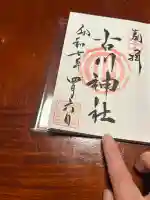 奉拝
古川神社
令和七年四月六日